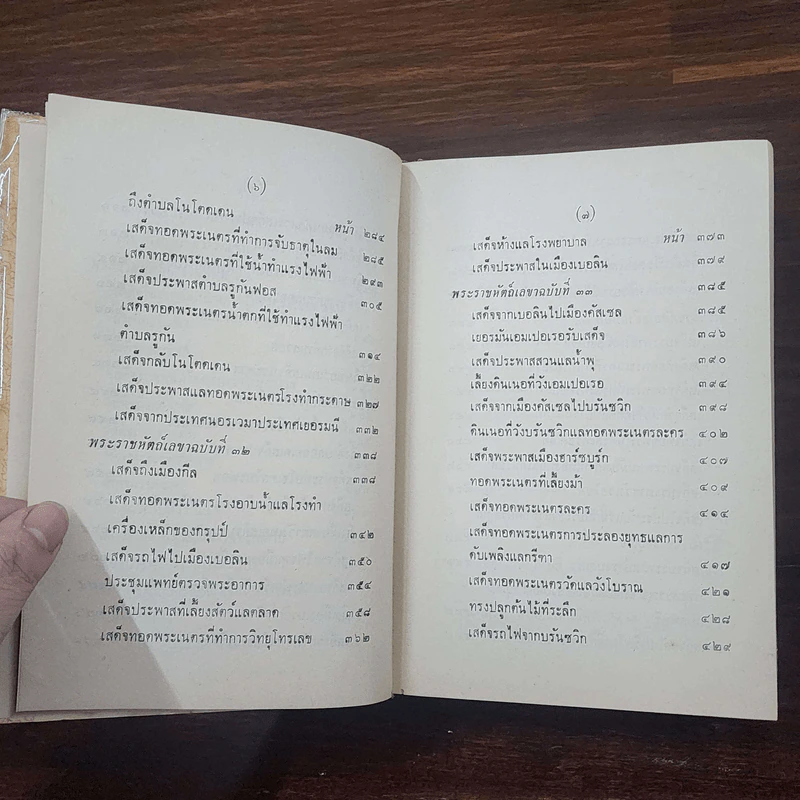 (๖)
หน้า
ถึงตำบลโนโตดเดน ๒๘๔
เสด็จทอดพระเนตรที่ทำการจับธาตุในลม ๒๘๕
เสด็จทอดพระเนตรที่ใช้น้ำทำแรงไฟฟ้า ๒๙๓
เสด็จประพาสตำบลรูกันฟอส ๓๐๕
เสด็จทอดพระเนตรน้ำตกที่ใช้ทำแรงไฟฟ้า
ตำบลรูกัน ๓๑๔
เสด็จกลับโนโตดเดน ๓๒๒
เสด็จประพาสแลทอดพระเนตรโรงทำกระดาษ ๓๒๗
เสด็จจากประเทศนอรเวมาประเทศเยอรมนี ๓๓๒
พระราชหัตถ์เลขาฉบับที่ ๓๒ ๓๓๘
เสด็จถึงเมืองกีล ๓๓๘
เสด็จทอดพระเนตรโรงอาบน้ำแลโรงทำ
เครื่องเหล็กของกรุปป์ ๓๔๒
เสด็จรถไฟไปเมืองเบอลิน ๓๕๐
ประชุมแพทย์ตรวจพระอาการ ๓๕๔
เสด็จประพาสที่เลี้ยงสัตว์แลตลาด ๓๕๘
เสด็จทอดพระเนตรที่ทำการวิทยุโทรเลข ๓๖๒
(๗)
หน้า
เสด็จห้างแลโรงพยาบาล ๓๗๓
เสด็จประพาสในเมืองเบอลิน ๓๗๙
พระราชหัตถ์เลขาฉบับที่ ๓๓ ๓๘๕
เสด็จจากเบอลินไปเมืองคัสเซล ๓๘๕
เยอรมันเอมเปอเรอรับเสด็จ ๓๘๖
เสด็จประพาสสวนแลน้ำพุ ๓๙๐
เลี้ยงดินเนอที่วังเอมเปอเรอ ๓๙๔
เสด็จจากเมืองคัสเซลไปบรันซวิก ๓๙๘
ดินเนอที่วังบรันซวิกแลทอดพระเนตรละคร ๔๐๒
เสด็จพระพาสเมืองฮาร์ซบูร์ก ๔๐๗
ทอดพระเนตรที่เลี้ยงม้า ๔๐๙
เสด็จทอดพระเนตรละคร ๔๑๔
เสด็จทอดพระเนตรการประลองยุทธแลการ
ดับเพลิงแลกรีฑา ๔๑๗
เสด็จทอดพระเนตรวัดแลวังโบราณ ๔๒๑
ทรงปลูกต้นไม้ที่ระลึก ๔๒๘
เสด็จรถไฟจากบรันซวิก ๔๒๙